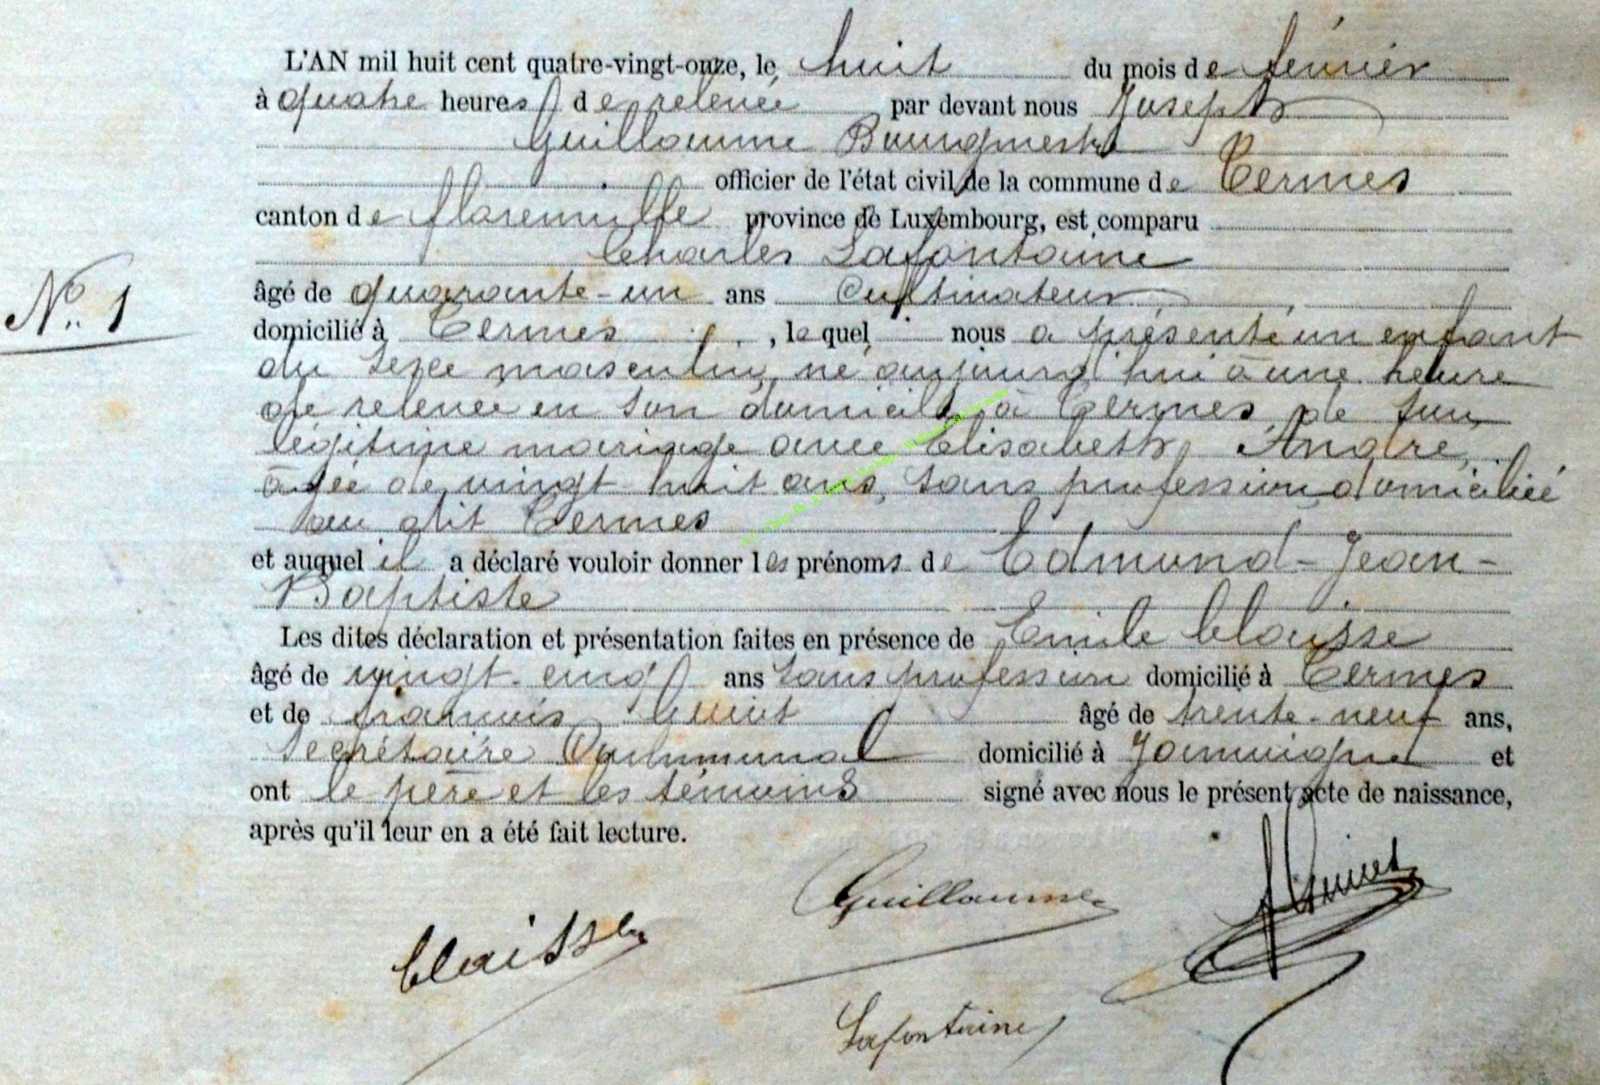 L'AN mil huit cent quatre-vingt-onze, le huit du mois de février
à quatre heures de relevée par devant nous Joseph
Guillaume Bourgmestre
officier de l'état civil de la commune de Termes
canton de florenville province de Luxembourg, est comparu
Charles Lafontaine
âgé de quarante-un ans Cultivateur
N° 1
domicilié à Termes, lequel nous a présenté un enfant
du sexe masculin, né aujourd'hui à une heure
de relevée en son domicile à Termes de son
légitime mariage avec Elisabeth André,
âgée de vingt huit ans, sans profession domiciliée
au dit Termes
et auquel il a déclaré vouloir donner les prénoms de Edmond-Jean-
Baptiste
Les dites déclaration et présentation faites en présence de Emile Claisse
âgé de vingt-cinq ans sans profession domicilié à Termes
et de françois âgé de trente-neuf ans,
Secrétaire Communal domicilié à Jamoigne et
ont le père et les témoins signé avec nous le présent acte de naissance,
après qu'il leur en a été fait lecture.
Guillaume
Claisse
Lafontaine